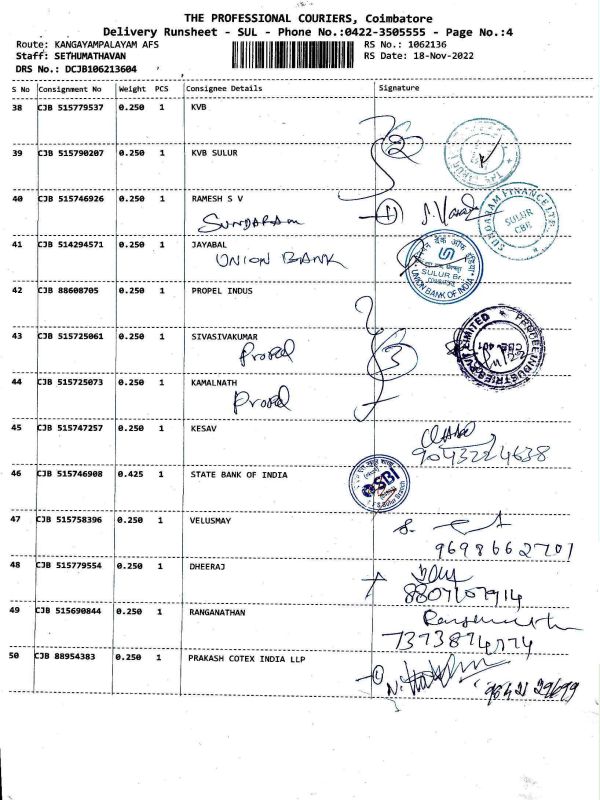 THE PROFESSIONAL COURIERS, Coimbatore
Delivery Runsheet - SUL - Phone No.:0422-3505555 - Page No.:4
Route: KANGAYAMPALAYAM AFS RS No.: 1062136
Staff: SETHUMATHAVAN RS Date: 18-Nov-2022
DRS No.: DCJB106213604
S No Consignment No Weight PCS Consignee Details Signature
38 CJB 515779537 0.250 1 KVB
39 CJB 515790207 0.250 1 KVB SULUR
40 CJB 515746926 0.250 1 RAMESH S V
SUNDARAM
SUNDARAM FINANCE LTD.
SULUR
CBE
41 CJB 514294571 0.250 1 JAYABAL
UNION BANK
SULUR Br.
UNION BANK OF INDIA
42 CJB 88608705 0.250 1 PROPEL INDUS
43 CJB 515725061 0.250 1 SIVASIVAKUMAR
Propel
44 CJB 515725073 0.250 1 KAMALNATH
Propel
45 CJB 515747257 0.250 1 KESAV
9043224638
46 CJB 515746908 0.425 1 STATE BANK OF INDIA
SBI
47 CJB 515758396 0.250 1 VELUSMAY
9698662701
48 CJB 515779554 0.250 1 DHEERAJ
8807107914
49 CJB 515690844 0.250 1 RANGANATHAN
50 CJB 88954383 0.250 1 PRAKASH COTEX INDIA LLP